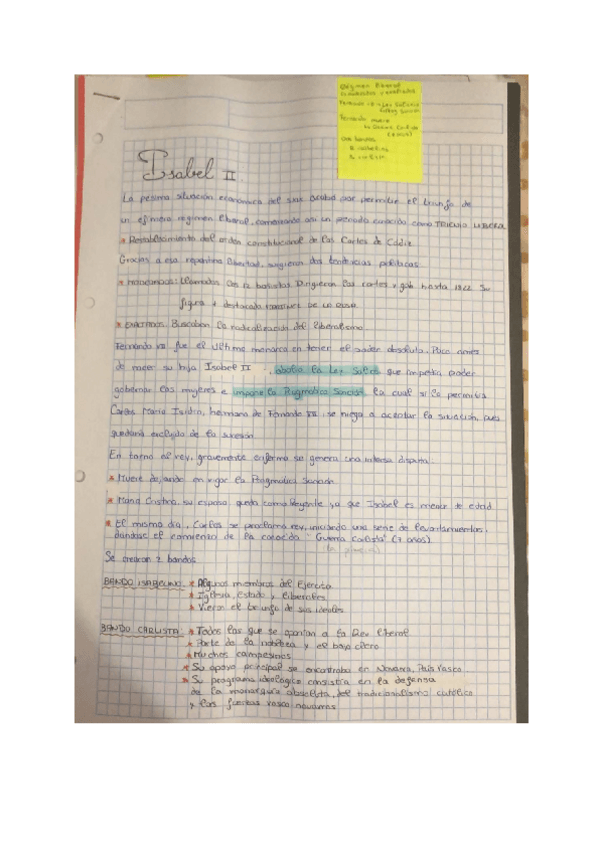 Régimen liberal
moderados y exaltados
Fernando
Fernando muere
(7 años)
Dos bandos
Isabel II
La pésima situación económica del sxix acabó por permitir el triunfo de
un efímero régimen liberal, comenzando así un periodo conocido como TRIENIO LIBERAL
* Restablecimiento del orden constitucional de las Cortes de Cádiz
Gracias a esa repentina libertad, surgieron dos tendencias políticas
* MODERADOS: Llamados Dirigieron las cortes y gob hasta 1822. Su
figura + destacada MARTÍNEZ DE LA ROSA
* EXALTADOS: Buscaban la radicalización del liberalismo
Fernando VII fue el último monarca en tener el poder absoluto. Poco antes
de nacer su hija Isabel II, abolió la Ley Sálica que impedía poder
gobernar las mujeres e impone la Pragmática Sanción, la cual sí lo permitía
Carlos María Isidro, hermano de Fernando VII, se niega a aceptar la situación, pues
quedaría excluido de la sucesión.
En torno al rey, gravemente enfermo se genera una intensa disputa:
* Muere dejando en vigor la Pragmática Sanción.
* María Cristina, su esposa queda como Regente, ya que Isabel es menor de edad
* El mismo día, Carlos se proclama rey, iniciando una serie de levantamientos,
dándose el comienzo de la conocida "Guerra Carlista" (7 años)
(la primera)
Se crearon 2 bandos
BANDO ISABELINO: * Algunos miembros del Ejército
* Iglesia, Estado y liberales
* Vieron el triunfo de sus ideales
BANDO CARLISTA: * Todos los que se oponían a la Rev liberal
* Parte de la nobleza y el bajo clero
* Muchos campesinos
* Su apoyo principal se encontraba en Navarra, País Vasco
* Su programa ideológico consistía en la defensa
de la monarquía absoluta, del tradicionalismo católico
y los fueros vasco navarros